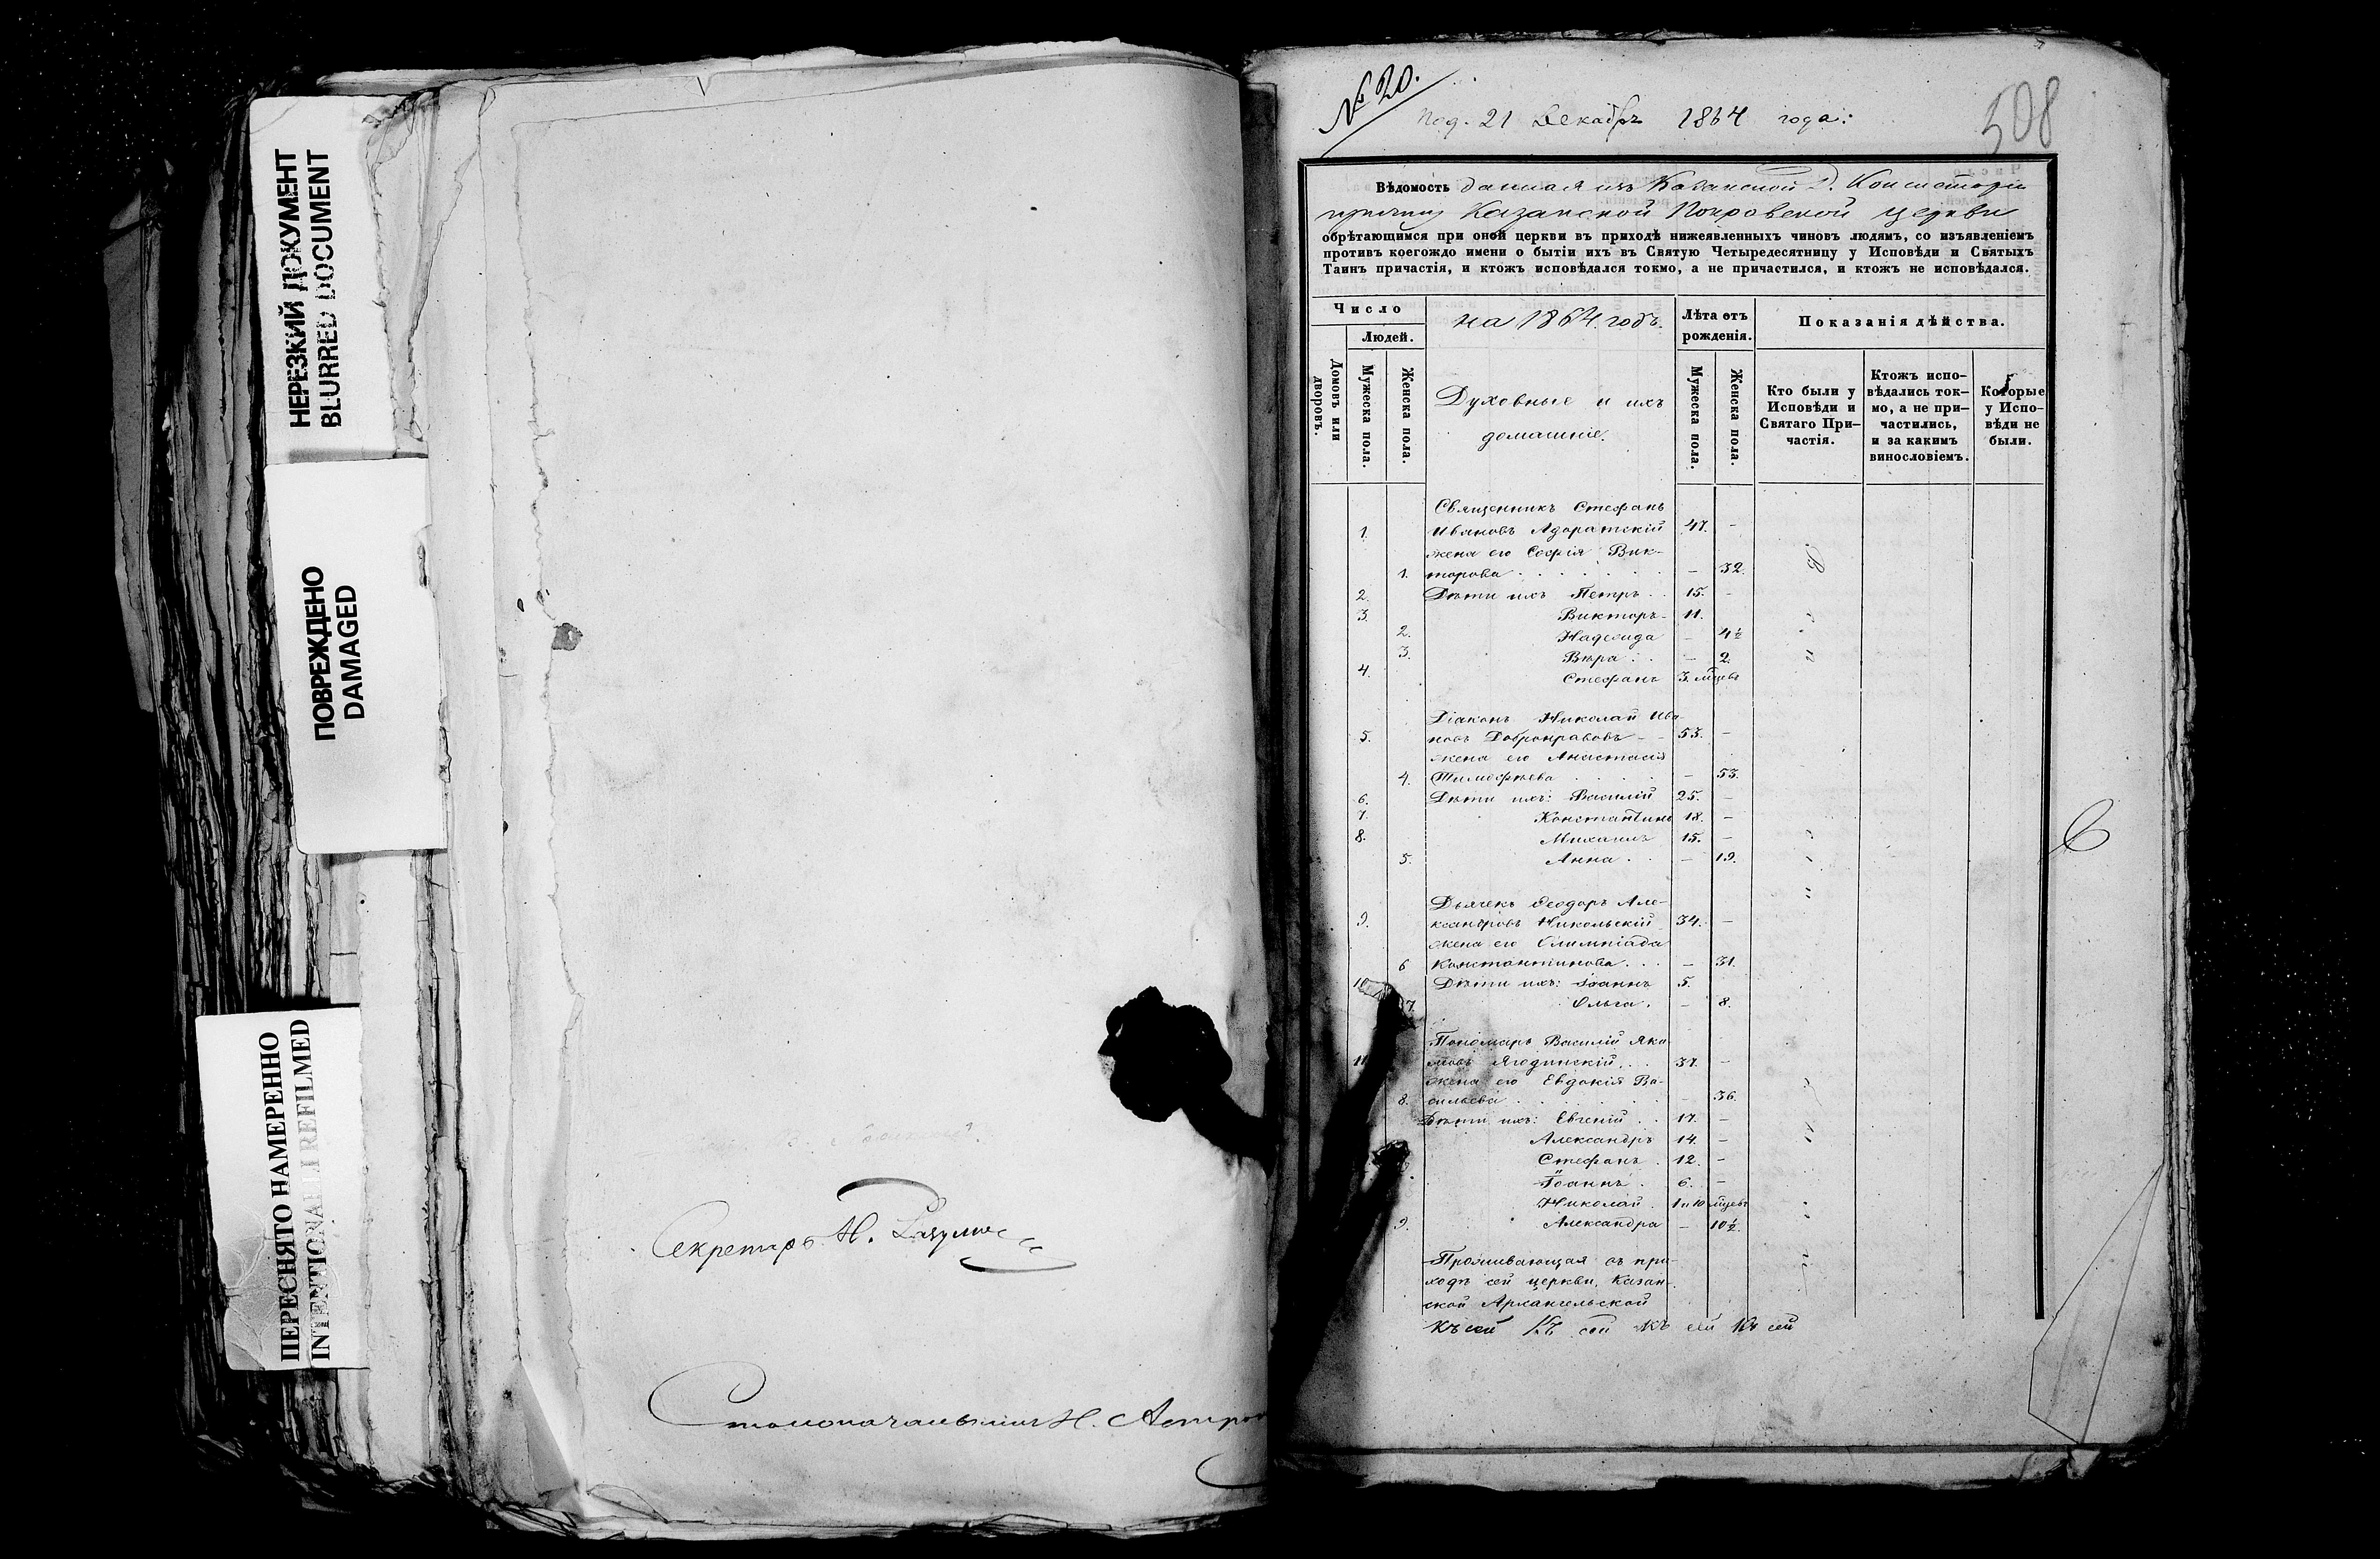 НЕРЕЗКИЙ ДОКУМЕНТ
BLURRED DOCUMENT
ПОВРЕЖДЕНО
DAMAGED
ПЕРЕСНЯТО НАМЕРЕННО
INTENTIONALLI REFILMED
Секретарь Н.
Столоначальникъ Н.
№ 20.
Под. 21 Декабръ 1864 года:
508
Вѣдомость данная изъ Казанской Д. Консисторіи
причту Казанской Покровской церкви
обрѣтающимся при оной церкви въ приходѣ нижеявленныхъ чиновъ людямъ, со изъявленіемъ
противъ коегождо имени о бытіи ихъ въ Святую Четыредесятницу у Исповѣди и Святыхъ
Таинъ причастія, и ктожъ исповѣдался токмо, а не причастился, и ктожъ не исповѣдался.
Число
Людей.
Домовъ или дворовъ.
Мужеска пола.
Женска пола.
на 1864 годъ.
Духовные и ихъ
домашніе.
Лѣта отъ
рожденія.
Мужеска пола.
Женска пола.
Показанія дѣйства.
Кто были у
Исповѣди и
Святаго При-
частія.
Ктожъ испо-
вѣдались ток-
мо, а не при-
частились,
и за какимъ
винословіемъ.
Которые
у Испо-
вѣди не
были.
Священникъ Стефанъ
1. Ивановъ Адоратскій 47. -
жена его Софія Вик-
1. торова . . . - 32.
2. Дѣти ихъ Петръ . . 15. -
3. Викторъ - 11.
2. Надежда - 4½
3. Вѣра . . - 2.
4. Стефанъ 3. мцевъ
Діаконъ Николай Ива-
5. новъ Добронравовъ - - 53. -
жена его Анастасія
4. Тимофѣева . . . - 53.
6. Дѣти ихъ: Василій 25. -
7. Константинъ 18. -
8. Михаилъ 15. -
5. Анна . . - 19.
Дьячекъ Ѳеодоръ Але-
9. ксандровъ Никольскій 34. -
жена его Олимпіада
6 Константинова . . . - 31.
10 Дѣти ихъ: Іоаннъ 5.
7. Ольга . - 8.
Пономарь Василій Яко
11 мовъ Ягодинскій . . . 37. -
жена его Евдокія Ва-
8. сильева . . . - 36.
Дѣти ихъ: Евгеній . . 17. -
Александръ 14. -
Стефанъ . 12. -
Іоаннъ . 6. -
Николай . 1 и 10 мцевъ
9. Александра - 10½.
Проживающая въ при-
ходѣ сей церкви, Казан-
ской Архангельской
Къ сей Къ сей Къ сей Къ сей